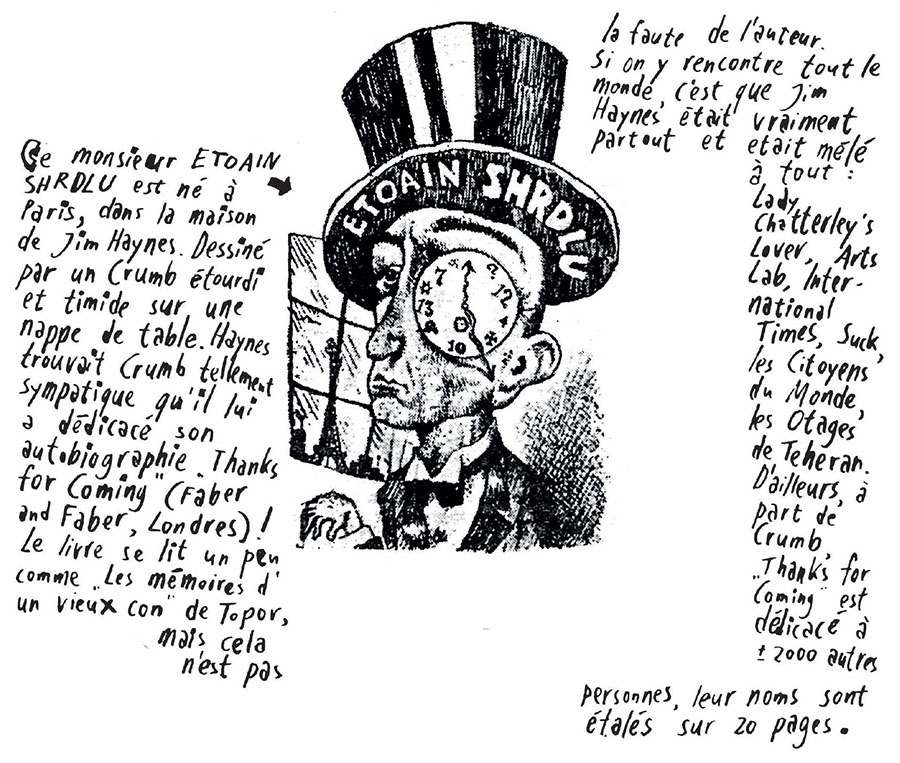 Ce monsieur ETOAIN
SHRDLU est né à
Paris, dans la maison
de Jim Haynes. Dessiné
par un Crumb étourdi
et timide sur une
nappe de table. Haynes
trouvait Crumb tellement
sympatique qu'il lui
a dédicacé son
autobiographie "Thanks
for Coming" (Faber
and Faber, Londres)!
Le livre se lit un peu
comme "Les mémoires d'
un vieux con" de Topor,
mais cela
n'est pas
ETOAIN SHRDLU
7
2
12
13
10
la faute de l'auteur.
Si on y rencontre tout le
monde, c'est que Jim
Haynes était vraiment
partout et etait mêlé
à tout :
Lady
Chatterley's
Lover, Arts
Lab, Inter-
national
Times, Suck,
les Citoyens
du Monde,
les Otages
de Teheran.
D'ailleurs, à
part de
Crumb,
"Thanks for
Coming" est
dédicacé à
± 2000 autres
personnes, leur noms sont
étalés sur 20 pages.